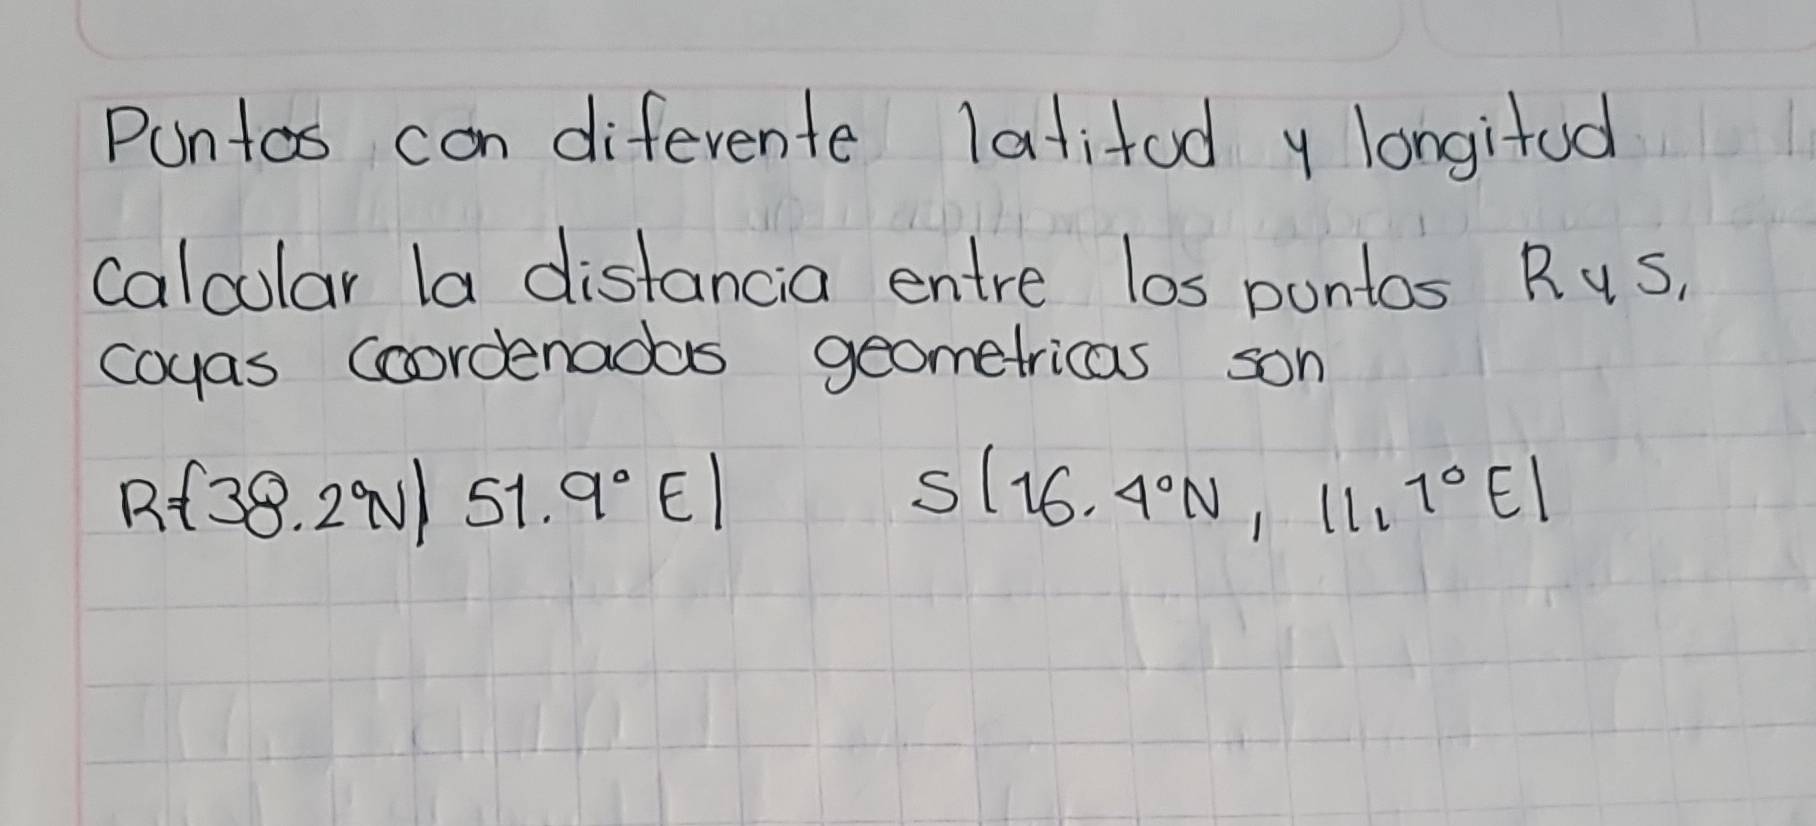 Puntos con diferente latitud y longitud
calcular la distancia entre los puntos R y S,
cuyas coordenadas geometricas son
R(38.2°N) 51.9°E) S(16.4°N, 11.1°E)